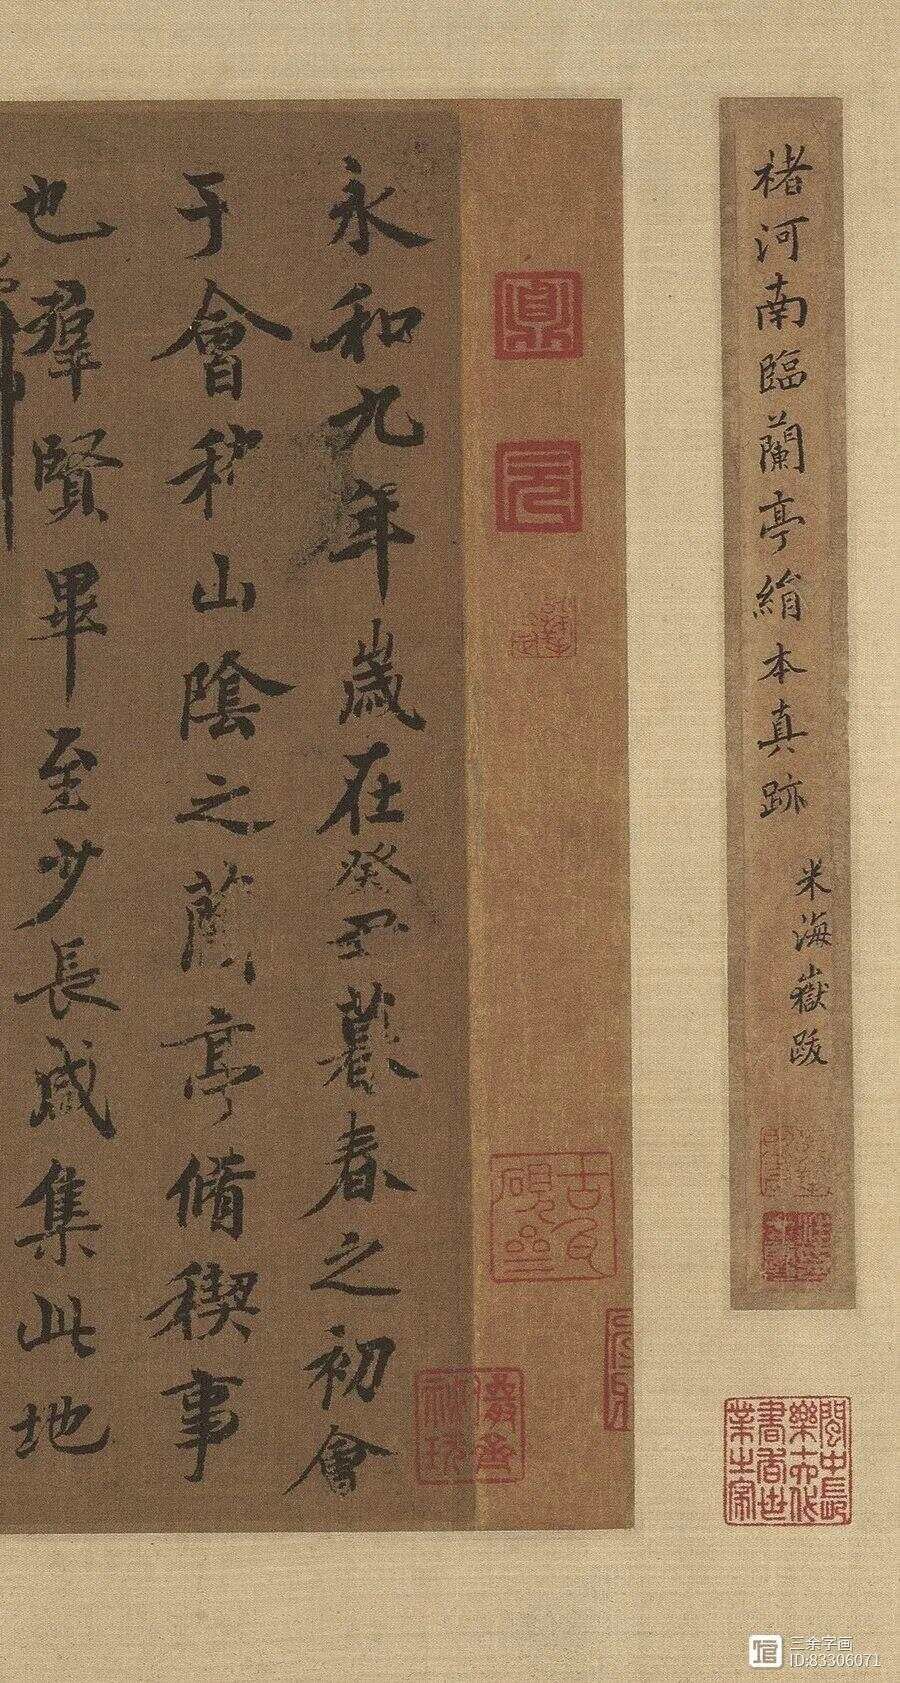 褚河南臨蘭亭絹本真跡
米海嶽跋
永和九年歲在癸丑暮春之初會
于會稽山陰之蘭亭脩稧事
也羣賢畢至少長咸集此地
三余字画
ID:83306071